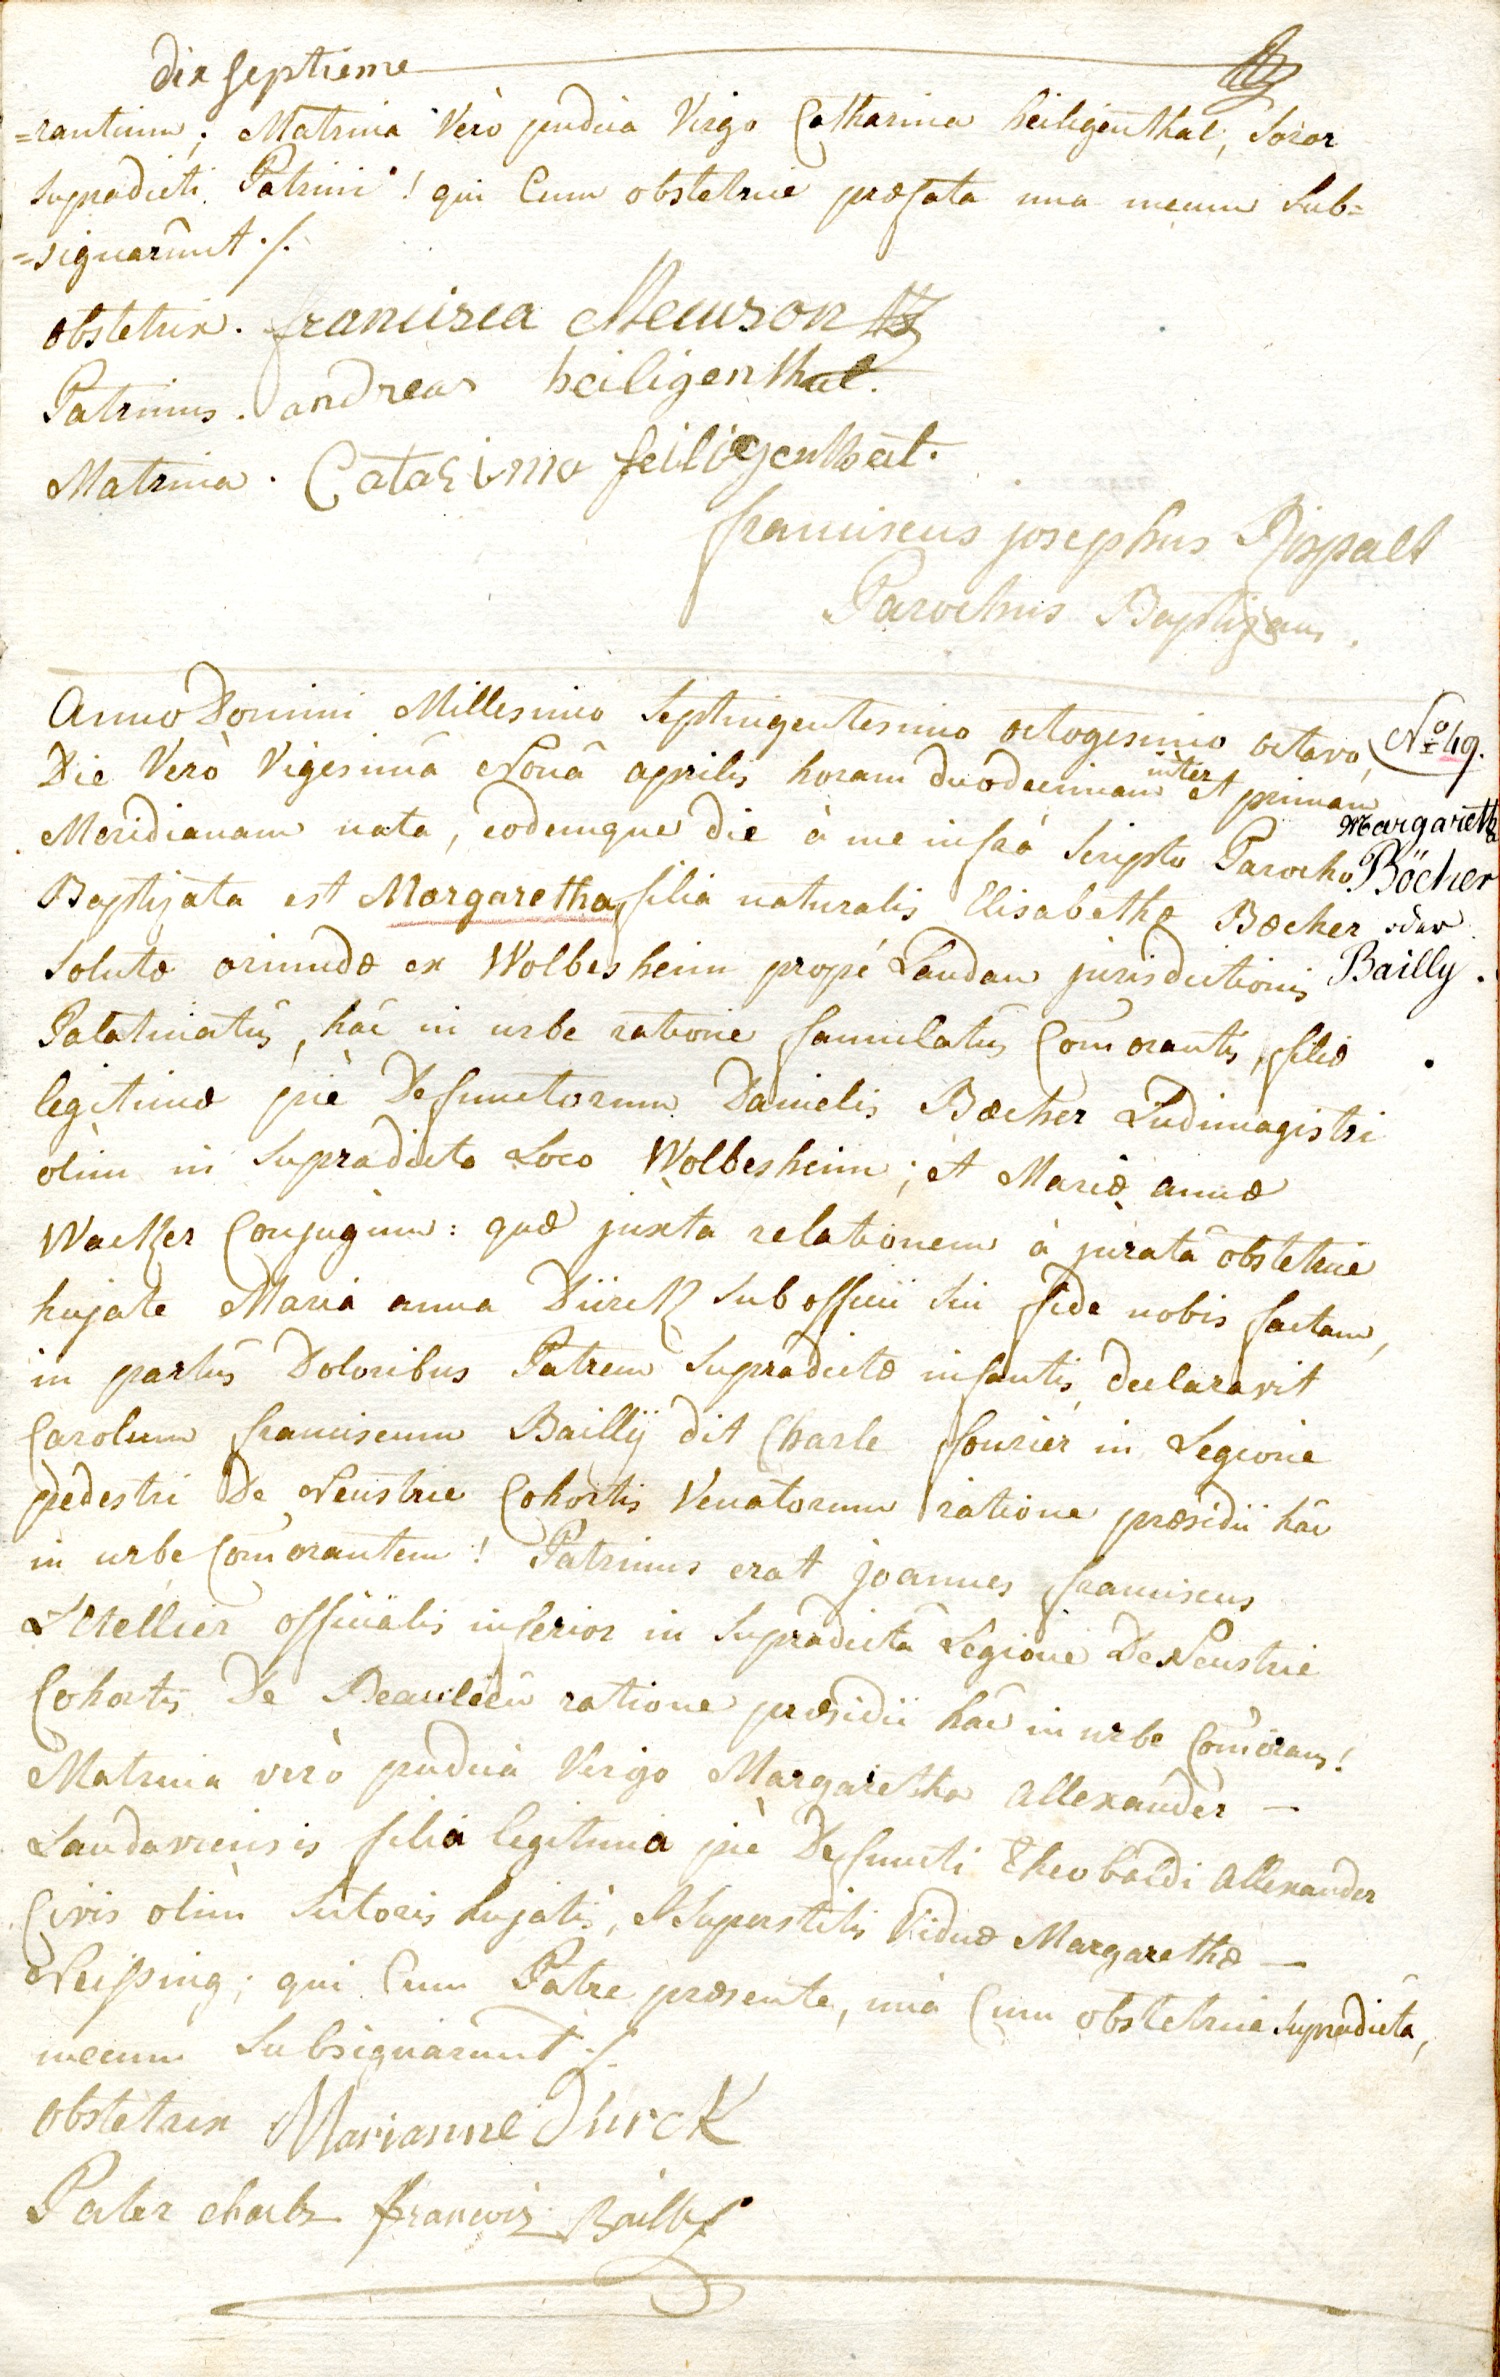 dix septieme
=rantium; Matrina Verò pudica Virgo Catharina heiligenthal, Soror
supradicti Patrini! qui Cum obstetrice præfata una mecum Sub=
=signarunt ./.
obstetrix. francisca Meurson
Patrinus. andreas heiligenthal.
Matrina. Catarina heiligenthal.
franciscus josephus Rispalt
Parochus Baptizans.
Anno Domini Millesimo Septingentesimo octogesimo octavo,
Die Verò Vigesimâ Nonâ aprilis horam duodecimam inter et primam
Meridianam nata, eodemque die à me infrà Scripto Parocho
Baptizata est Margaretha filia naturalis Elisabethæ Bæcher
Solutæ oriundæ ex Wolbesheim propé Landau jurisdictionis
Palatinatûs, hâc in urbe ratione famulatûs Com̃orantis, filiæ
legitimæ piè Defunctorum Danielis Bæcher Ludimagistri
olim in Supradicto Loco Wolbesheim; et Mariæ annæ
Wacker Conjugum: quæ juxta relationem à juratâ obstetrice
hujate Maria anna Dürck Sub officii Sui fide nobis factam,
in partûs Doloribus Patrem Supradictæ infantis declaravit
Carolum franciscum Baillÿ dit Charle fourier in Legione
pedestri De Neustrie Cohortis Venatorum ratione præsidii hâc
in urbe Com̃orantem! Patrinus erat joannes franciscus
Letellier officialis inferior in Supradictâ Legione De Neustrie
Cohortis De Beaulieu ratione præsidii hâc in urbe Com̃orans!
Matrina verò pudica Virgo Margaretha allexander —
Landaviensis filia legitima piè Defuncti Theobaldi allexander
Civis olim Sutoris hujatis, et Superstitis Viduæ Margarethæ —
Neissing; qui Cum Patre præsente, unà Cum obstetrice supradicta,
mecum Subsignarunt ./.
obstetrix Marianne Durck
Pater charls francois Bailly
No. 49.
Margaretha
Böcher
oder
Bailly.